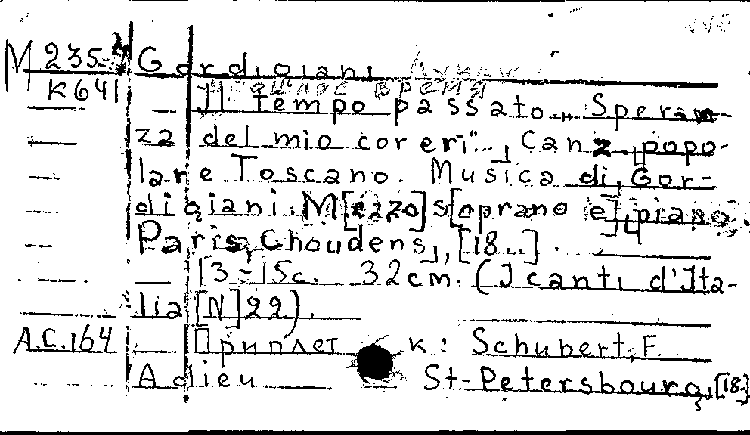 M 235-4 Gordigiani
K641 Il tempo passato... "Speran-
za del mio coreri"..., Canz. popo-
lare Toscano. Musica di Gor-
digiani. M[ezzo] s[oprano e] piano.
Paris, Choudens, [18..].
13-15c. 32cm. (I canti d'Ita-
lia [N] 22).
A.C.164 Приплет к: Schubert, F.
Adieu St-Petersbourg, [18.]